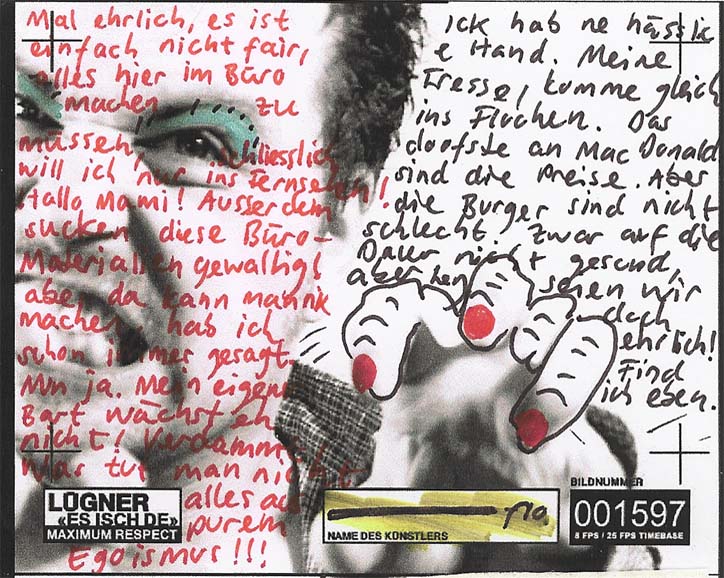 Mal ehrlich, es ist
einfach nicht fair,
alles hier im Büro
machen zu
müssen, schliesslich
will ich nur ins Fernsehen!
Hallo Mami! Ausserdem
sucken diese Büro-
Materialien gewaltig!
aber da kann mannik
machen, hab ich
schon immer gesagt.
Nun ja. Mein eigener
Bart wächst eh
nicht! Verdammt!
Was tut man nicht
alles aus
purem
Egoismus!!!
Ick hab ne hässlic
e Hand. Meine
Fresse, komme gleich
ins Fluchen. Das
doofste an Mac Donald
sind die Preise. Aber
die Burger sind nicht
schlecht! Zwar auf die
Dauer nicht gesund,
aber sehen wir
doch
ehrlich!
Find
ich eben.
LÜGNER
«ES ISCH DE»
MAXIMUM RESPECT
flo
NAME DES KÜNSTLERS
BILDNUMMER
001597
8 FPS / 25 FPS TIMEBASE